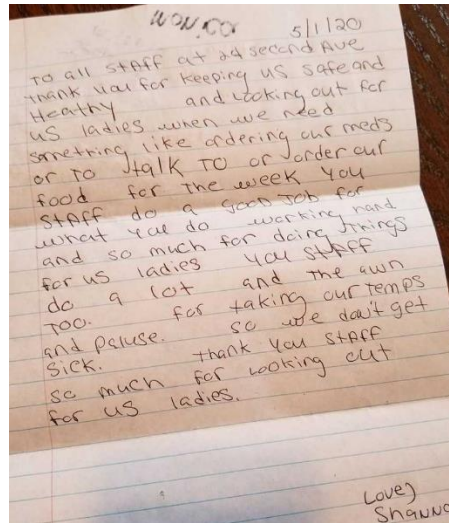 5/1/20
TO all StAFF at 24 second Ave
thank you for keeping us safe and
Heathy and Looking out for
us ladies when we need
something like ordering our meds
or to talk TO or order our
food for the week you
StAFF do a good Job for
what you do working hard
and so much for doing things
for us ladies you StAFF
do a lot and the awn
TOO. for taking our temps
and paluse. so we don't get
Sick. thank you StAFF
so much for Looking out
for us ladies.
Love)
Shann